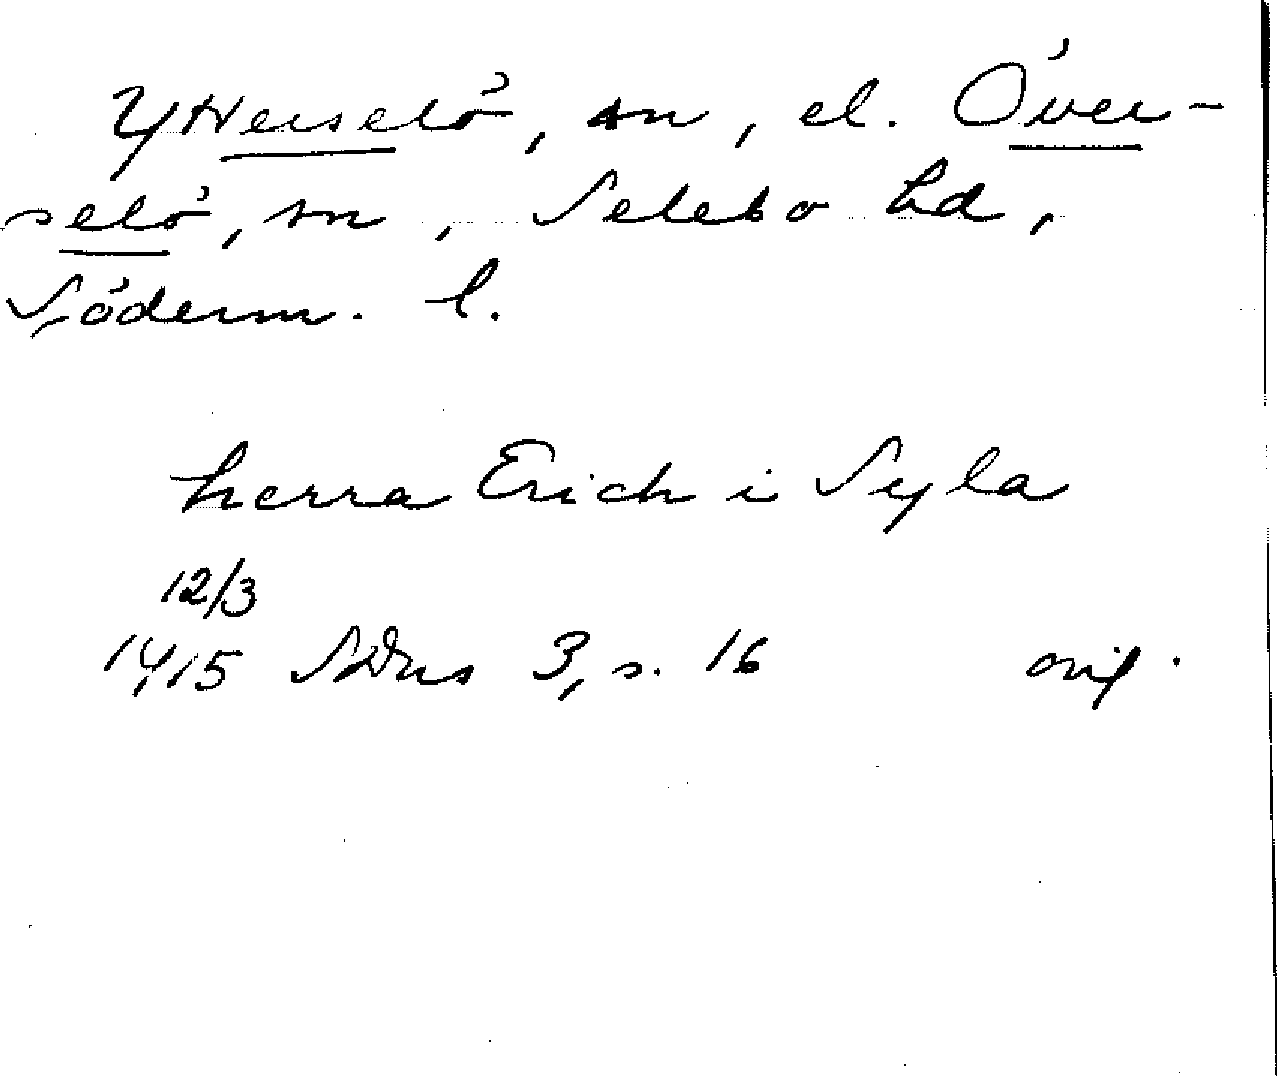 Ytterselö, sn, el. Över-
selö, sn, Selebo hd,
Söderm. l.
herra Erich i Syla
12/3
1415 SDns 3, s. 16 orig.